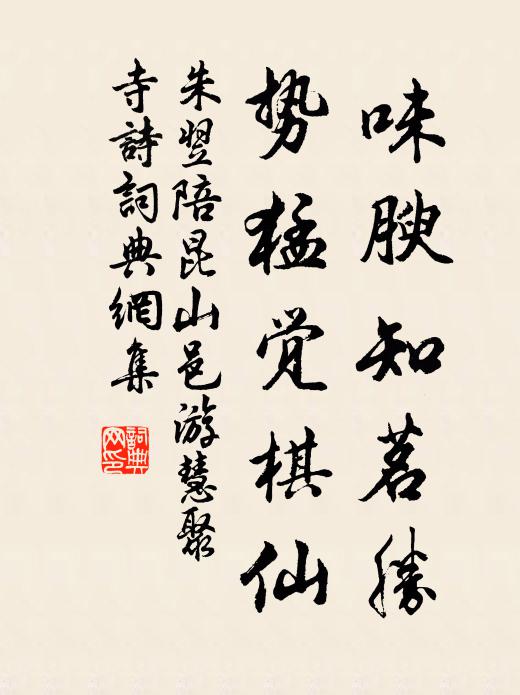 味腴知茗勝
势猛觉棋仙
朱翌陪昆山邑游慧聚
寺詩詞典網集
詞典网印